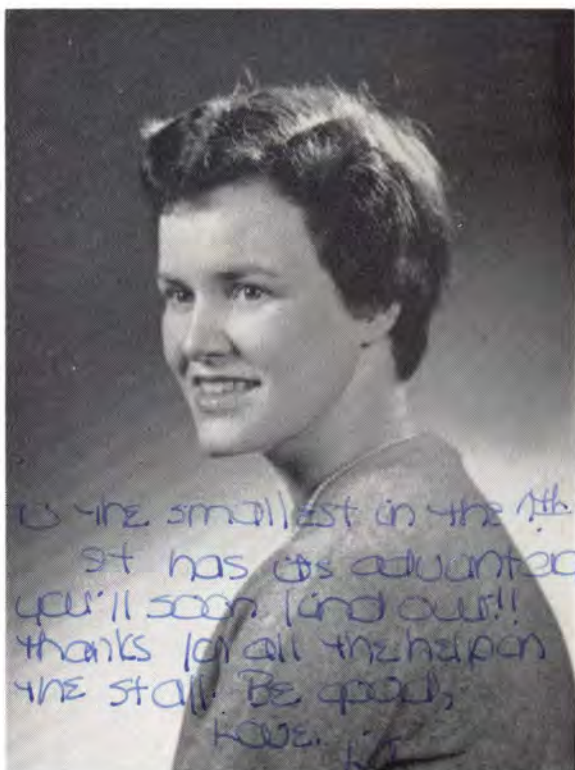 the smallest in the 7th
It has its advantag
you'll soon find out!!
thanks for all the help on
the staff. Be good,
Love,